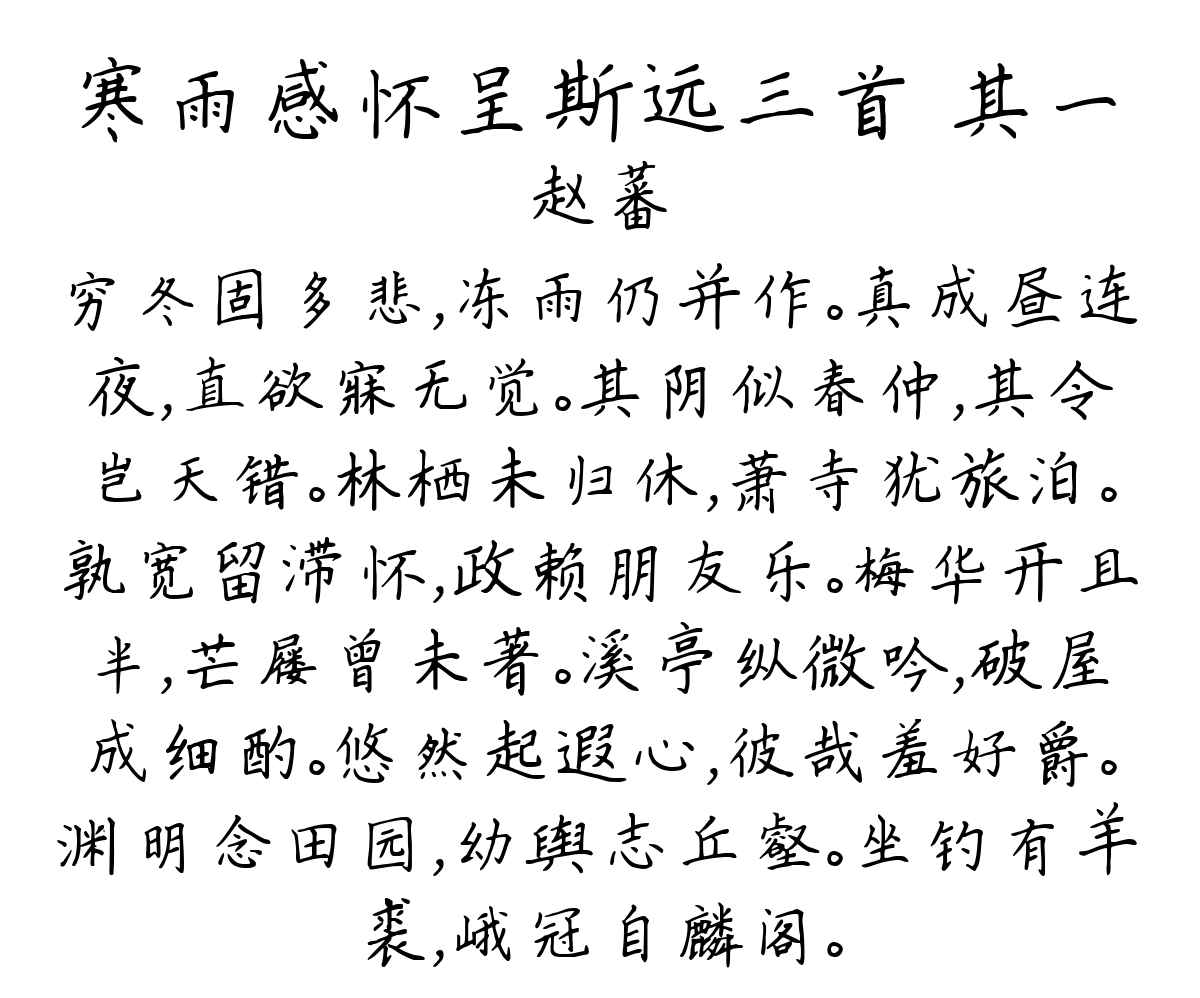 寒雨感怀呈斯远三首 其一
赵蕃
穷冬固多悲,冻雨仍并作。真成昼连
夜,直欲寐无觉。其阴似春仲,其令
岂天错。林栖未归休,萧寺犹旅泊。
孰宽留滞怀,政赖朋友乐。梅华开且
半,芒屦曾未著。溪亭纵微吟,破屋
成细酌。悠然起遐心,彼哉羞好爵。
渊明念田园,幼舆志丘壑。坐钓有羊
裘,峨冠自麟阁。